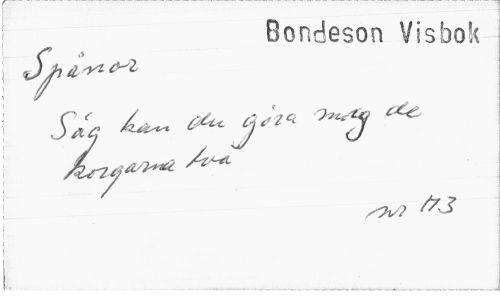 Bondeson Visbok
Spånor
Säg kan du göra mag de
korgarna två
nr 113